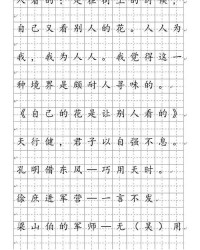 人看的？是在街上的时候，
自己又看别人的花。人人为
我，我为人人。我觉得这一
种境界是颇耐人寻味的。
《自己的花是让别人看的》
天行健，君子以自强不息。
孔明借东风—巧用天时。
徐庶进军营—一言不发.
梁山伯的军师—无（吴）用